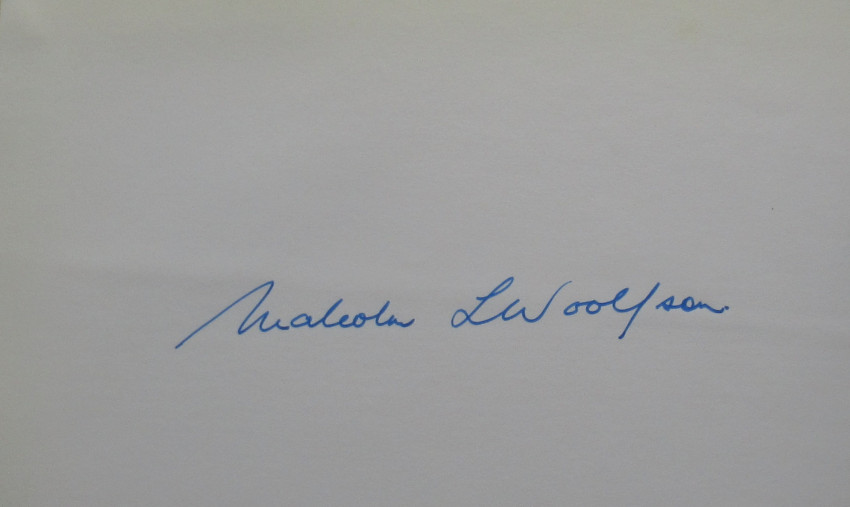 Malcolm L Woolfson.